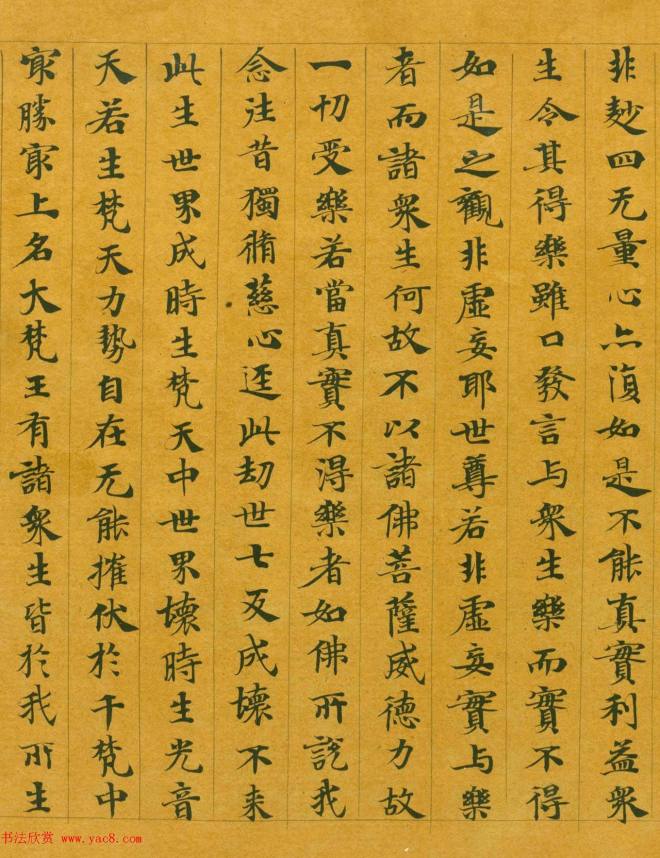 非麨四无量心亦復如是不能真實利益衆
生令其得樂雖口發言与衆生樂而實不得
如是之觀非虛妄耶世尊若非虛妄實与樂
者而諸衆生何故不以諸佛菩薩威德力故
一切受樂若當真實不得樂者如佛所說我
念往昔獨脩慈心逕此劫世七反成壞不来
此生世界成時生梵天中世界壞時生光音
天若生梵天力勢自在无能摧伏於千梵中
冣勝冣上名大梵王有諸衆生皆於我所生
书法欣赏 www.yac8.com